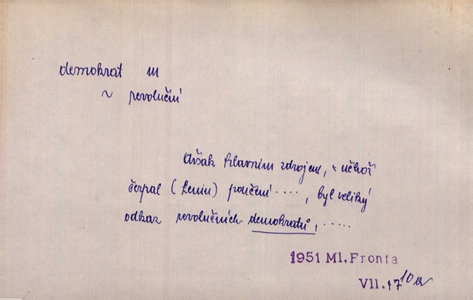 demokrat m
~ revoluční
Avšak hlavním zdrojem, z něhož
čerpal (Lenin) poučení ...., byl veliký
odkaz revolučních demokratů, .....
1951 Ml. Fronta
VII. 17